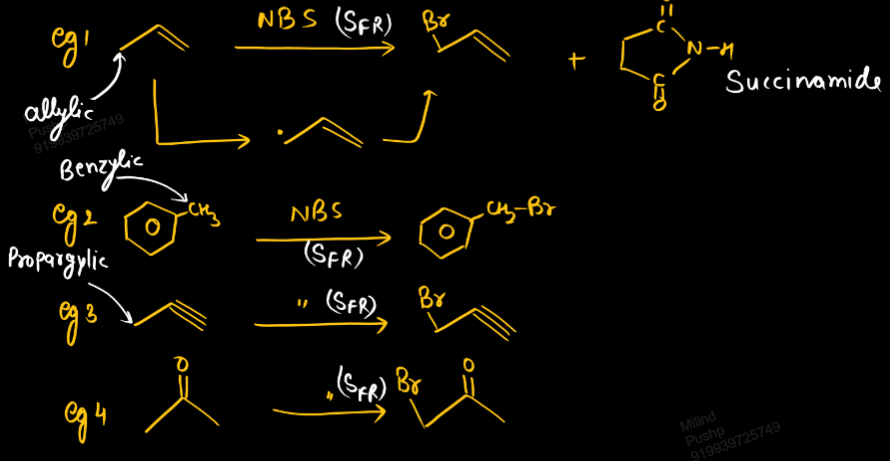 eg1 NBS (SFR) Br
+ O C N-H C O Succinamide
allylic
Milind
Pushp
919939725749
Benzylic
eg2 O CH3 NBS (SFR) O CH2-Br
Propargylic
eg3 " (SFR) Br
eg4 O " (SFR) Br O
Milind
Pushp
919939725749